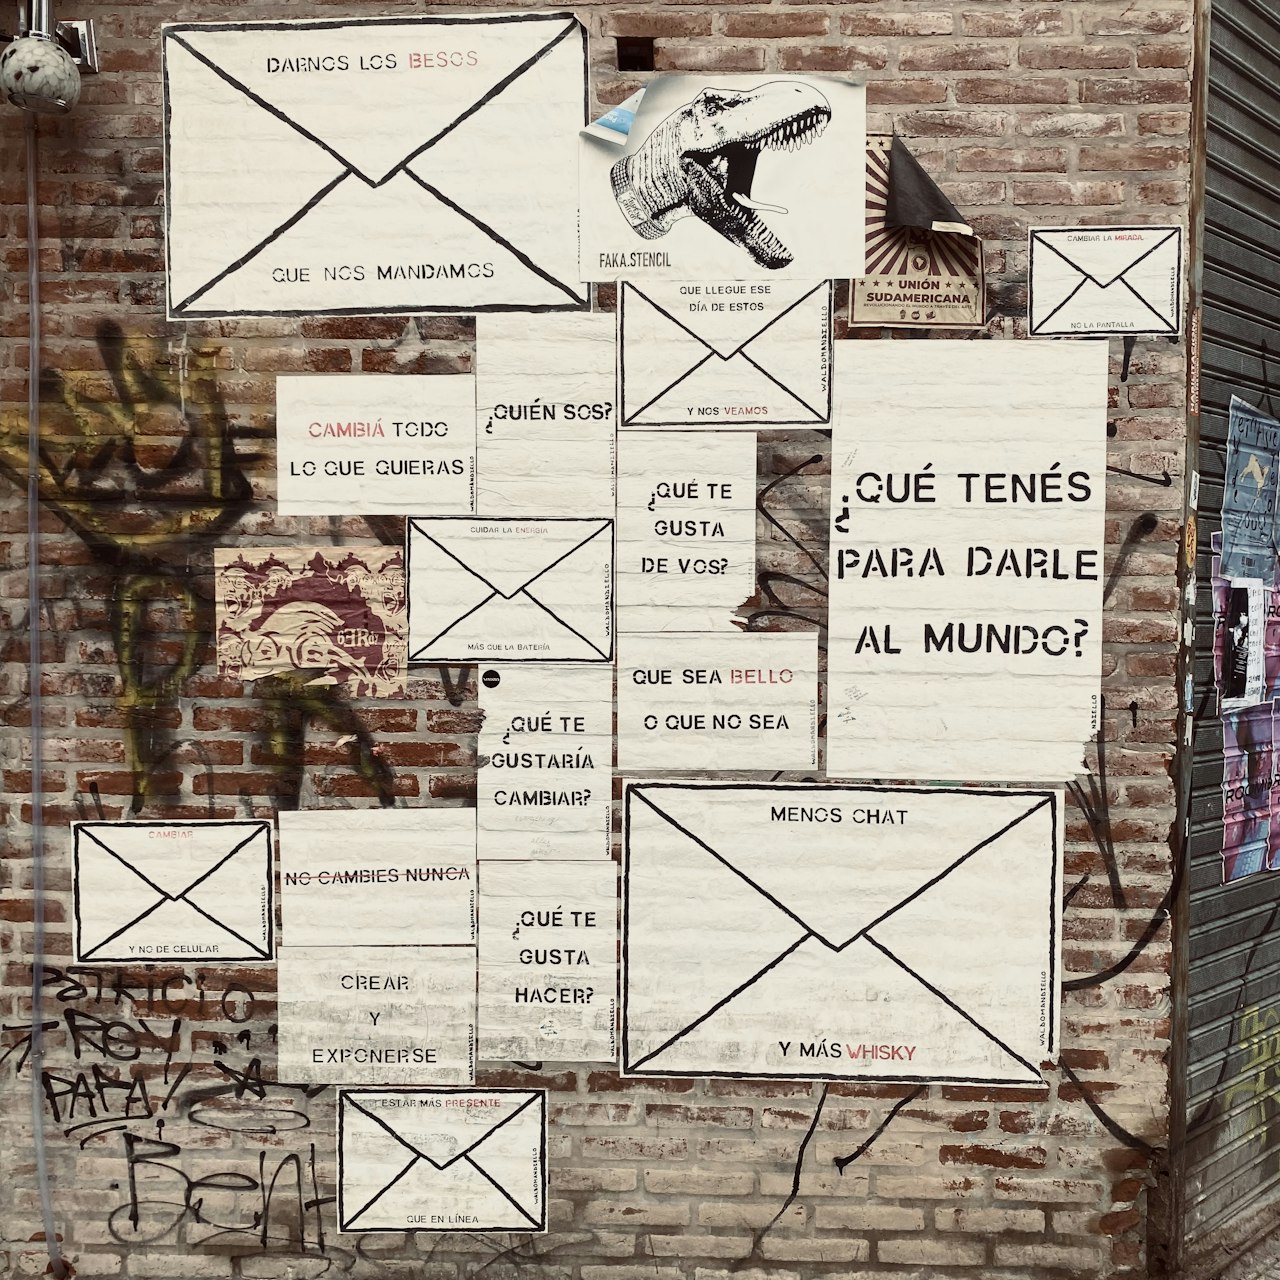 DARNOS LOS BESOS
QUE NOS MANDAMOS
FAKA.STENCIL
UNIÓN
SUDAMERICANA
REVOLUCIONANDO EL MUNDO A TRAVÉS DEL ARTE
CAMBIAR LA MIRADA
NO LA PANTALLA
WALDOMANDIELLO
QUE LLEGUE ESE
DÍA DE ESTOS
Y NOS VEAMOS
WALDOMANDIELLO
CAMBIÁ TODO
LO QUE QUIERAS
WALDOMANDIELLO
¿QUIÉN SOS?
WALDOMANDIELLO
¿QUÉ TE
GUSTA
DE VOS?
¿QUÉ TENÉS
PARA DARLE
AL MUNDO?
NDIELLO
CUIDAR LA ENERGÍA
MÁS QUE LA BATERÍA
WALDOMANDIELLO
QUE SEA BELLO
O QUE NO SEA
WALDOMANDIELLO
¿QUÉ TE
GUSTARÍA
CAMBIAR?
WALDOMANDIELLO
CAMBIAR
Y NO DE CELULAR
WALDOMANDIELLO
NO CAMBIES NUNCA
WALDOMANDIELLO
CREAR
Y
EXPONERSE
WALDOMANDIELLO
¿QUÉ TE
GUSTA
HACER?
WALDOMANDIELLO
MENOS CHAT
Y MÁS WHISKY
WALDOMANDIELLO
ESTAR MÁS PRESENTE
QUE EN LÍNEA
WALDOMANDIELLO
PATRICIO
REY
PAPA!